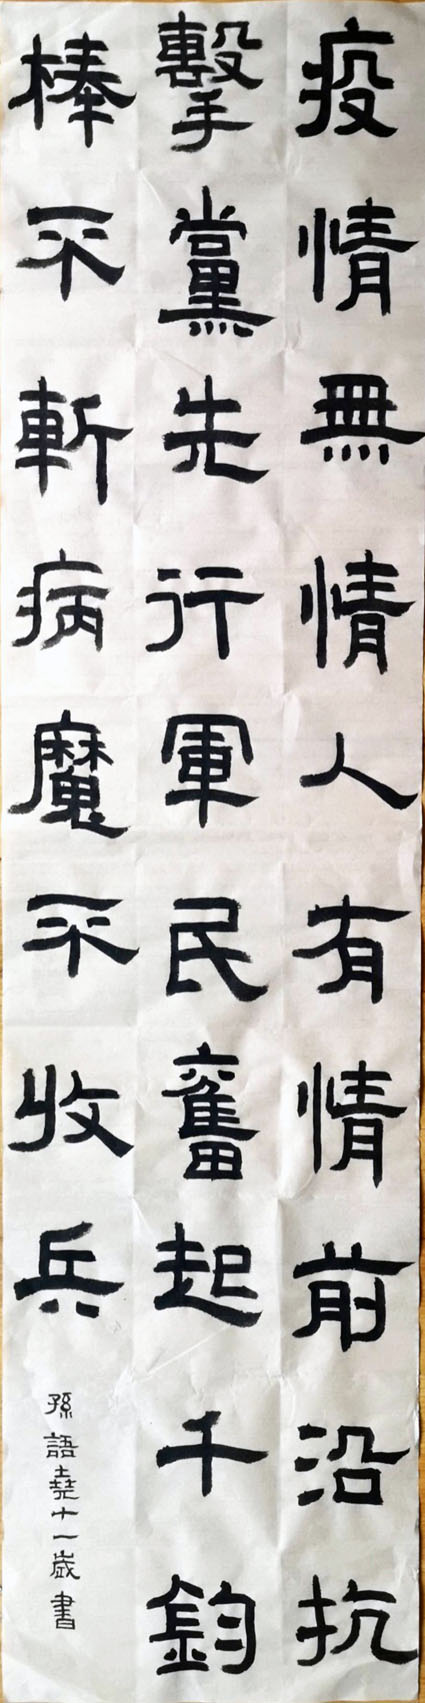 疫情無情人有情前沿抗
擊黨先行軍民奮起千鈞
棒不斬病魔不收兵
孫語堯十一歲書